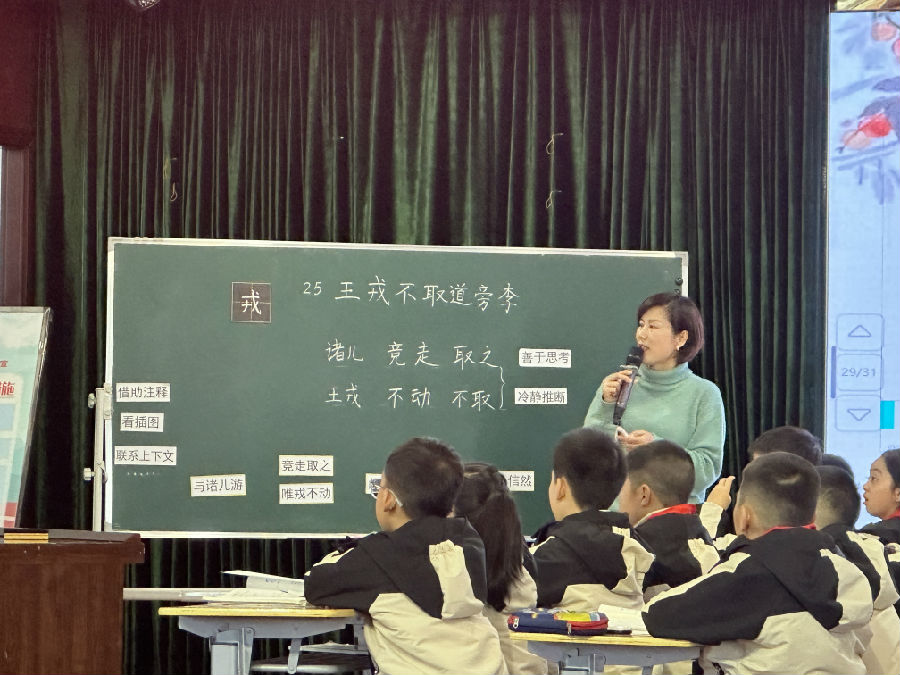 戎
25 王戎不取道旁李
诸儿 竞走 取之
善于思考
王戎 不动 不取
冷静推断
借助注释
看插图
联系上下文
与诸儿游
竞走取之
唯戎不动
信然
29/31